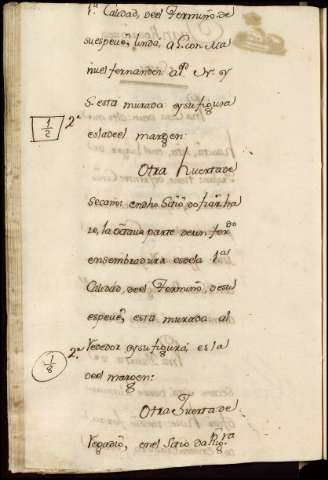 1ª Calidad, deel Termino, de
su espeuẽ, linda, a L. con Ma
nuel fernandez al Pº N. y
S. esta murada ysu figura
esladeel margen:
1/2
2ª
Otra huerta de
Secano, en dho Sitio, do
re, la octava parte de un fer.do
en sembradura es de la 1ª
Calidad, deel Termino, de su
espeuẽ, esta murada al
rededor ysu figura, es la
1/8
2ª
deel margen:
Otra Huerta de
Regadio, en el Sitio da